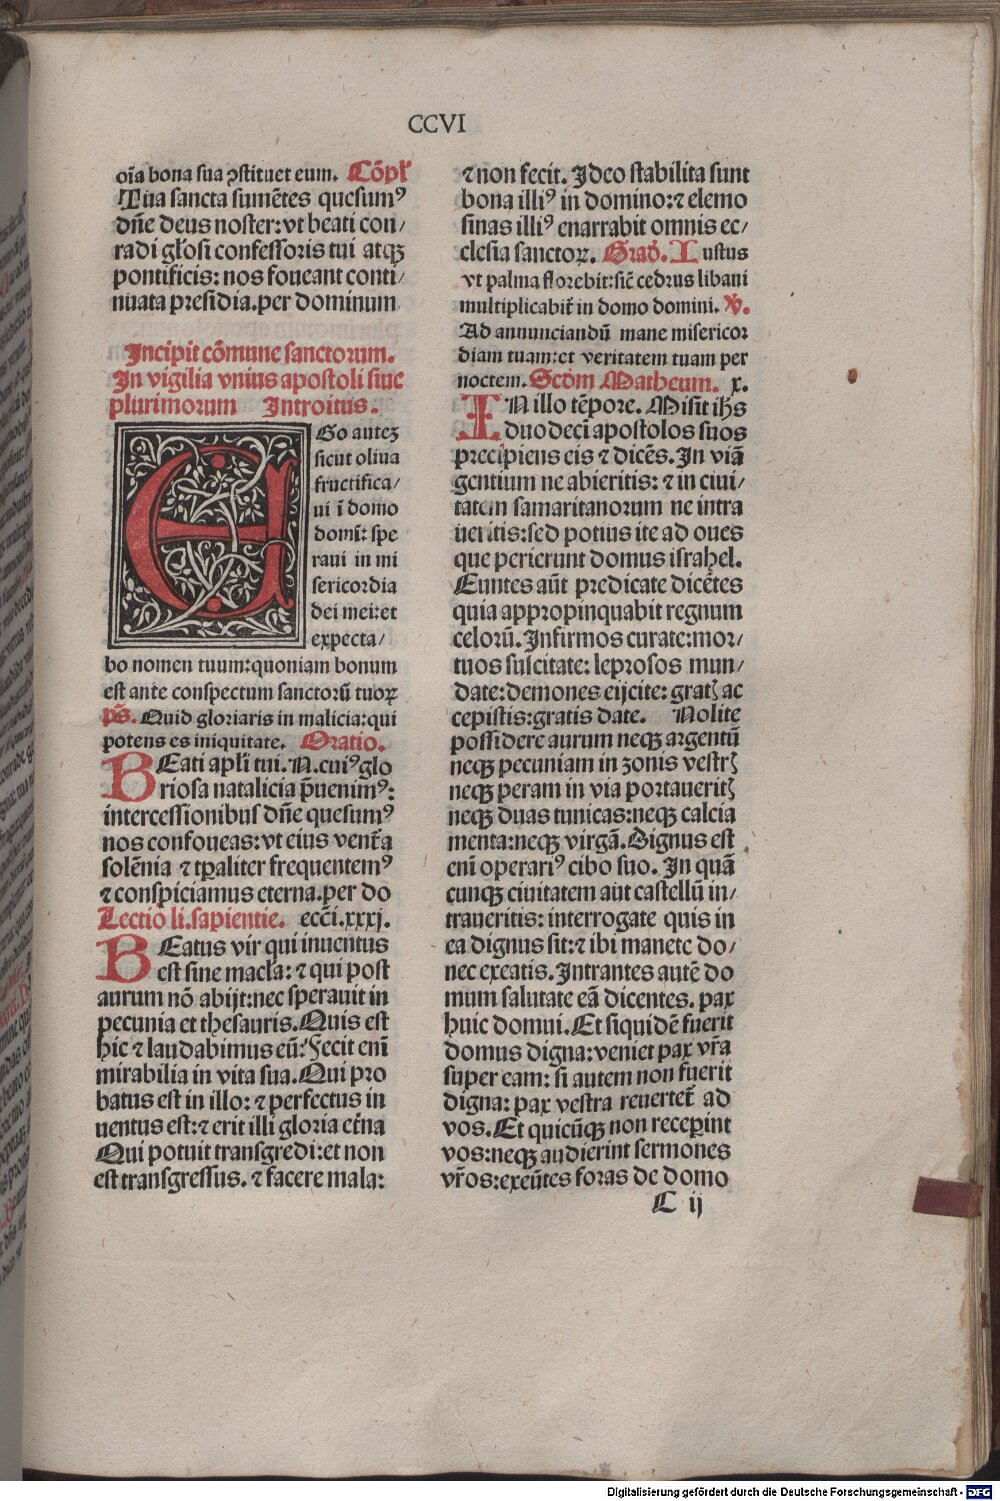 CCVI
oīa bona sua ꝯstituet eum. Cōpl'
Tua sancta sumētes quesumꝰ
dñe deus noster: vt beati con⸗
radi gl'osi confessoris tui atqꝫ
pontificis: nos foueant conti⸗
nuata presidia. per dominum
Incipit cōmune sanctorum.
In vigilia vnius apostoli siue
plurimorum Introitus.
EGo auteꝫ
sicut oliua
fructifica⸗
ui ī domo
domī: spe
raui in mi
sericordia
dei mei: et
expecta⸗
bo nomen tuum: quoniam bonum
est ante conspectum sanctorū tuoꝝ
ps. Quid gloriaris in malicia: qui
potens es iniquitate. Oratio.
BEati apl'i tui. N. cuiꝰ glo
riosa natalicia p̄uenimꝰ:
intercessionibus dñe quesumꝰ
nos confoueas: vt eius vent'a
solēnia ⁊ tp̄aliter frequentemꝰ
⁊ conspiciamus eterna. per do
Lectio li. sapientie. eccī. xxxj.
BEatus vir qui inuentus
est sine macl'a: ⁊ qui post
aurum nō abijt: nec sperauit in
pecunia et thesauris. Quis est
hic ⁊ laudabimus eū: Fecit enī
mirabilia in vita sua. Qui pro
batus est in illo: ⁊ perfectus in
uentus est: ⁊ erit illi gloria et'na
Qui potuit transgredi: et non
est transgressus. ⁊ facere mala:
⁊ non fecit. Ideo stabilita sunt
bona illiꝰ in domino: ⁊ elemo
sinas illiꝰ enarrabit omnis ec⸗
clesia sanctoꝝ. Grad. Iustus
vt palma florebit: sic̄ cedrus libani
multiplicabit̄ in domo domini. ℣.
Ad annunciandū mane misericor
diam tuam: et veritatem tuam per
noctem. Scd̄m Matheum. x.
IN illo tēpore. Misit ih̄s
duodecī apostolos suos
precipiens eis ⁊ dicēs. In viā
gentium ne abieritis: ⁊ in ciui⸗
tatem samaritanorum ne intra
ueritis: sed potius ite ad oues
que perierunt domus israhel.
Euntes aūt predicate dicētes
quia appropinquabit regnum
celorū. Infirmos curate: mor⸗
tuos suscitate: leprosos mun⸗
date: demones eijcite: gratꝭ ac
cepistis: gratis date. Nolite
possidere aurum neqꝫ argentū
neqꝫ pecuniam in zonis vestrꝭ
neqꝫ peram in via portaueritꝭ
neqꝫ duas tunicas: neqꝫ calcia
menta: neqꝫ virgā. Dignus est
enī operariꝰ cibo suo. In quā
cunqꝫ ciuitatem aut castellū in⸗
traueritis: interrogate quis in
ea dignus sit: ⁊ ibi manete do⸗
nec exeatis. Intrantes autē do
mum salutate eā dicentes. pax
huic domui. Et siquidē fuerit
domus digna: veniet pax vr̄a
super eam: si autem non fuerit
digna: pax vestra reuertet̄ ad
vos. Et quicūqꝫ non recep̄int
vos: neqꝫ audierint sermones
vr̄os: exeūtes foras de domo
C ij
Digitalisierung gefördert durch die Deutsche Forschungsgemeinschaft - DFG